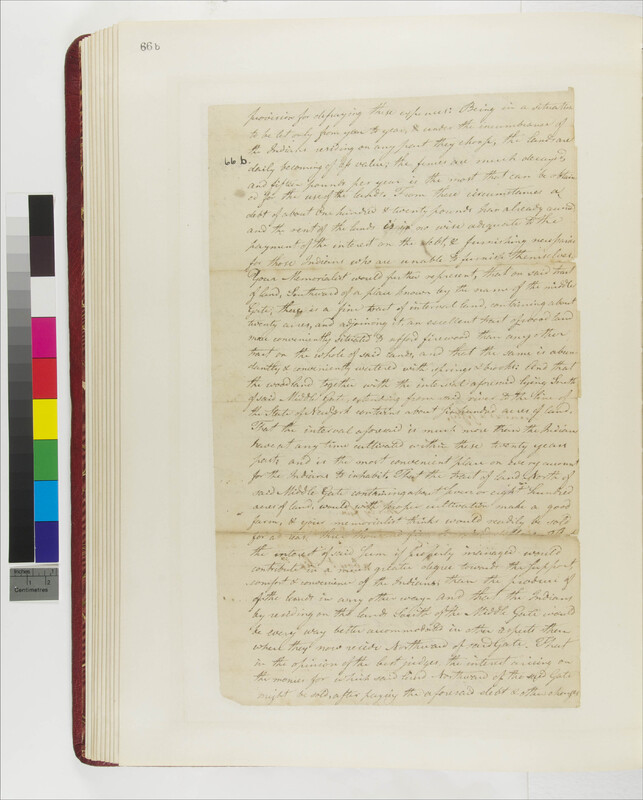 66 b
provision for defraying these expences: Being in a situation
to be let only from year to year, & under the incumbrance of
the Indians residing on any part they choose, the lands are
66 b.
daily becoming of less value; the fences are much decayed
and fifteen pounds per year is the most that can be obtain
ed for the use of the lands. From these circumstances a
debt of about One hundred & twenty pounds has already accrued
and the rent of the lands is in no wise adequate to the
payment of the interest on the debt, & furnishing necessaries
for those Indians who are unable to furnish themselves.
Your Memorialist would further represent, that on said tract
of land, Southward of a place known by the name of the middle
Gate, there is a fine tract of interval land, containing about
twenty acres, and adjoining it, an excellent tract of wood land
more conveniently situated to afford firewood than any other
tract on the whole of said lands, and that the same is abun
dantly & conveniently watered with springs & brooks And that
the woodland together with the interval aforesaid lying South
of said Middle Gate, extending from said river to the line of
the State of contains about hundred acres of land.
That the interval aforesaid is much more than the Indians
have at any time cultivated within these twenty years
past, and is the most convenient place on every account
for the Indians to inhabit. That the tract of land North of
said Middle Gate containing about seven or eight hundred
acres of land, would with proper cultivation make a good
farm, & your memorialist thinks would readily be sold
for
the interest of said sum if properly managed would
contribute in a much greater degree towards the support
comfort & convenience of the Indians than the produce of
the lands in any other way And that the Indians
by residing on the lands South of the Middle Gate would
be every way better accommodated in other respects than
where they now reside Northward of said Gate. That
in the opinion of the best judges the interest arising on
the monies for which said land Northward of the said Gate
might be sold, after paying the aforesaid debt & other charges
Inches 1 2
Centimetres